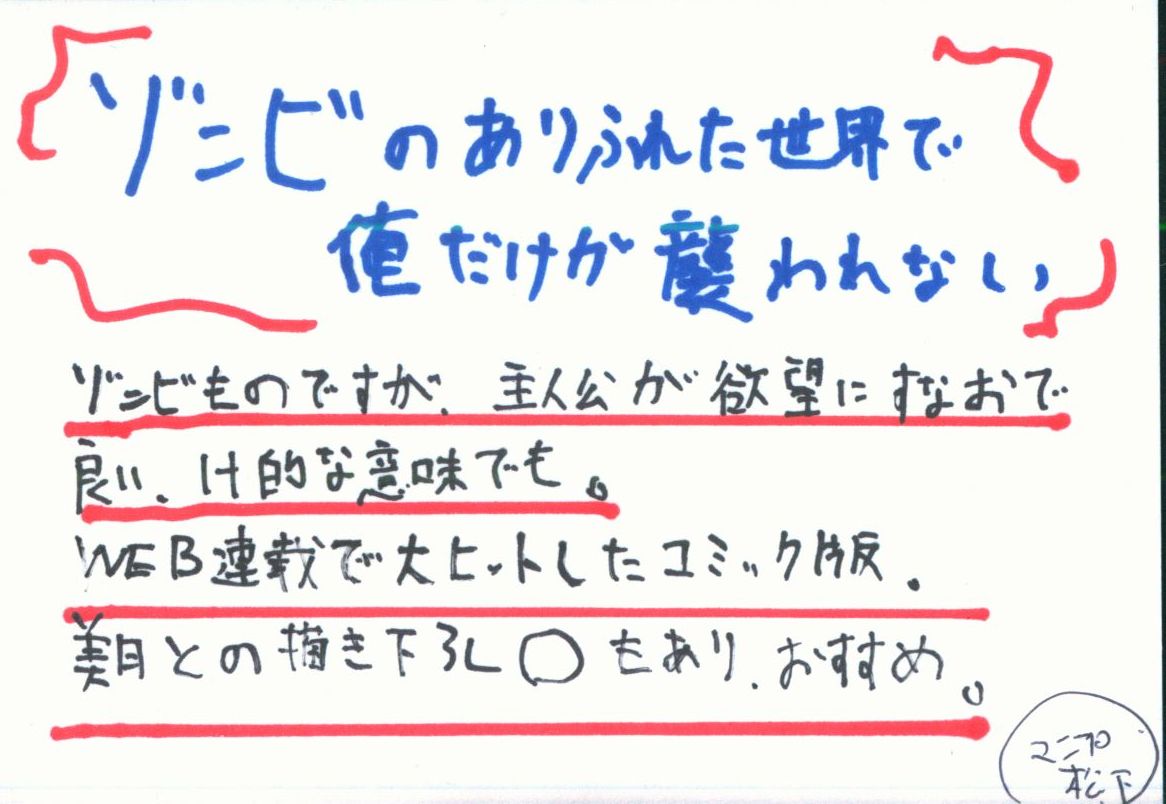 ゾンビのありふれた世界で
俺だけが襲われない
ゾンビものですが、主人公が欲望にすなおで
良い、H的な意味でも。
WEB連載で大ヒットしたコミック版。
美月との描き下ろし〇もあり、おすすめ。
松下